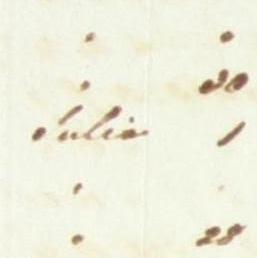 " "
" 30
Julio 1
"
" 28